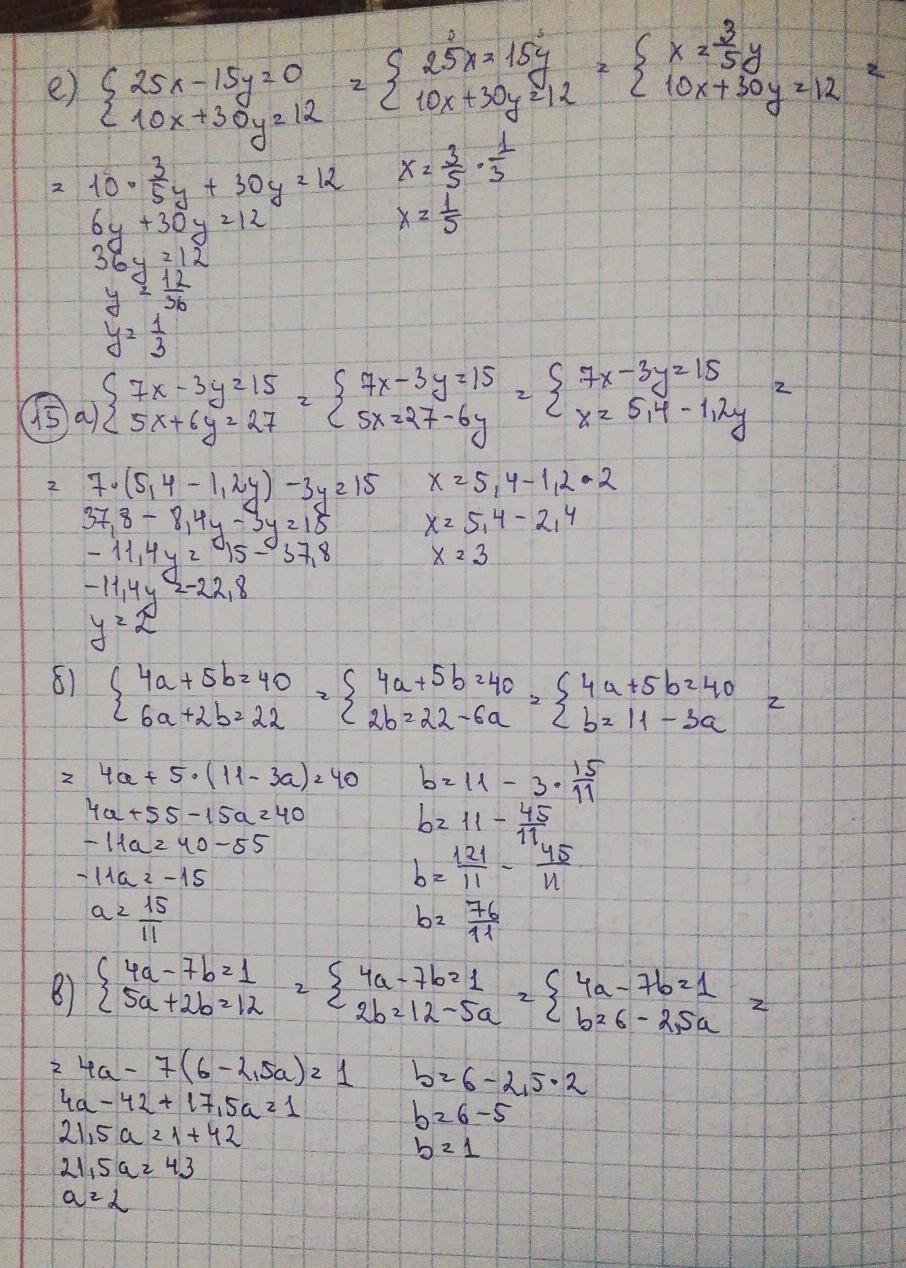 е) { 25x - 15y = 0 = { 25x = 15y = { x = 3/5 y =
10x + 30y = 12 10x + 30y = 12 10x + 30y = 12
= 10 · 3/5 y + 30y = 12 x = 3/5 · 1/3
6y + 30y = 12 x = 1/5
36y = 12
y = 12/36
y = 1/3
15 а) { 7x - 3y = 15 = { 7x - 3y = 15 = { 7x - 3y = 15 =
5x + 6y = 27 5x = 27 - 6y x = 5,4 - 1,2y
= 7·(5,4 - 1,2y) - 3y = 15 x = 5,4 - 1,2 · 2
37,8 - 8,4y - 3y = 15 x = 5,4 - 2,4
-11,4y = 15 - 37,8 x = 3
-11,4y = -22,8
y = 2
б) { 4a + 5b = 40 = { 4a + 5b = 40 = { 4a + 5b = 40 =
6a + 2b = 22 2b = 22 - 6a b = 11 - 3a
= 4a + 5·(11 - 3a) = 40 b = 11 - 3 · 15/11
4a + 55 - 15a = 40 b = 11 - 45/11
-11a = 40 - 55 b = 121/11 - 45/11
-11a = -15 b = 76/11
a = 15/11
в) { 4a - 7b = 1 = { 4a - 7b = 1 = { 4a - 7b = 1 =
5a + 2b = 12 2b = 12 - 5a b = 6 - 2,5a
= 4a - 7(6 - 2,5a) = 1 b = 6 - 2,5 · 2
4a - 42 + 17,5a = 1 b = 6 - 5
21,5a = 1 + 42 b = 1
21,5a = 43
a = 2